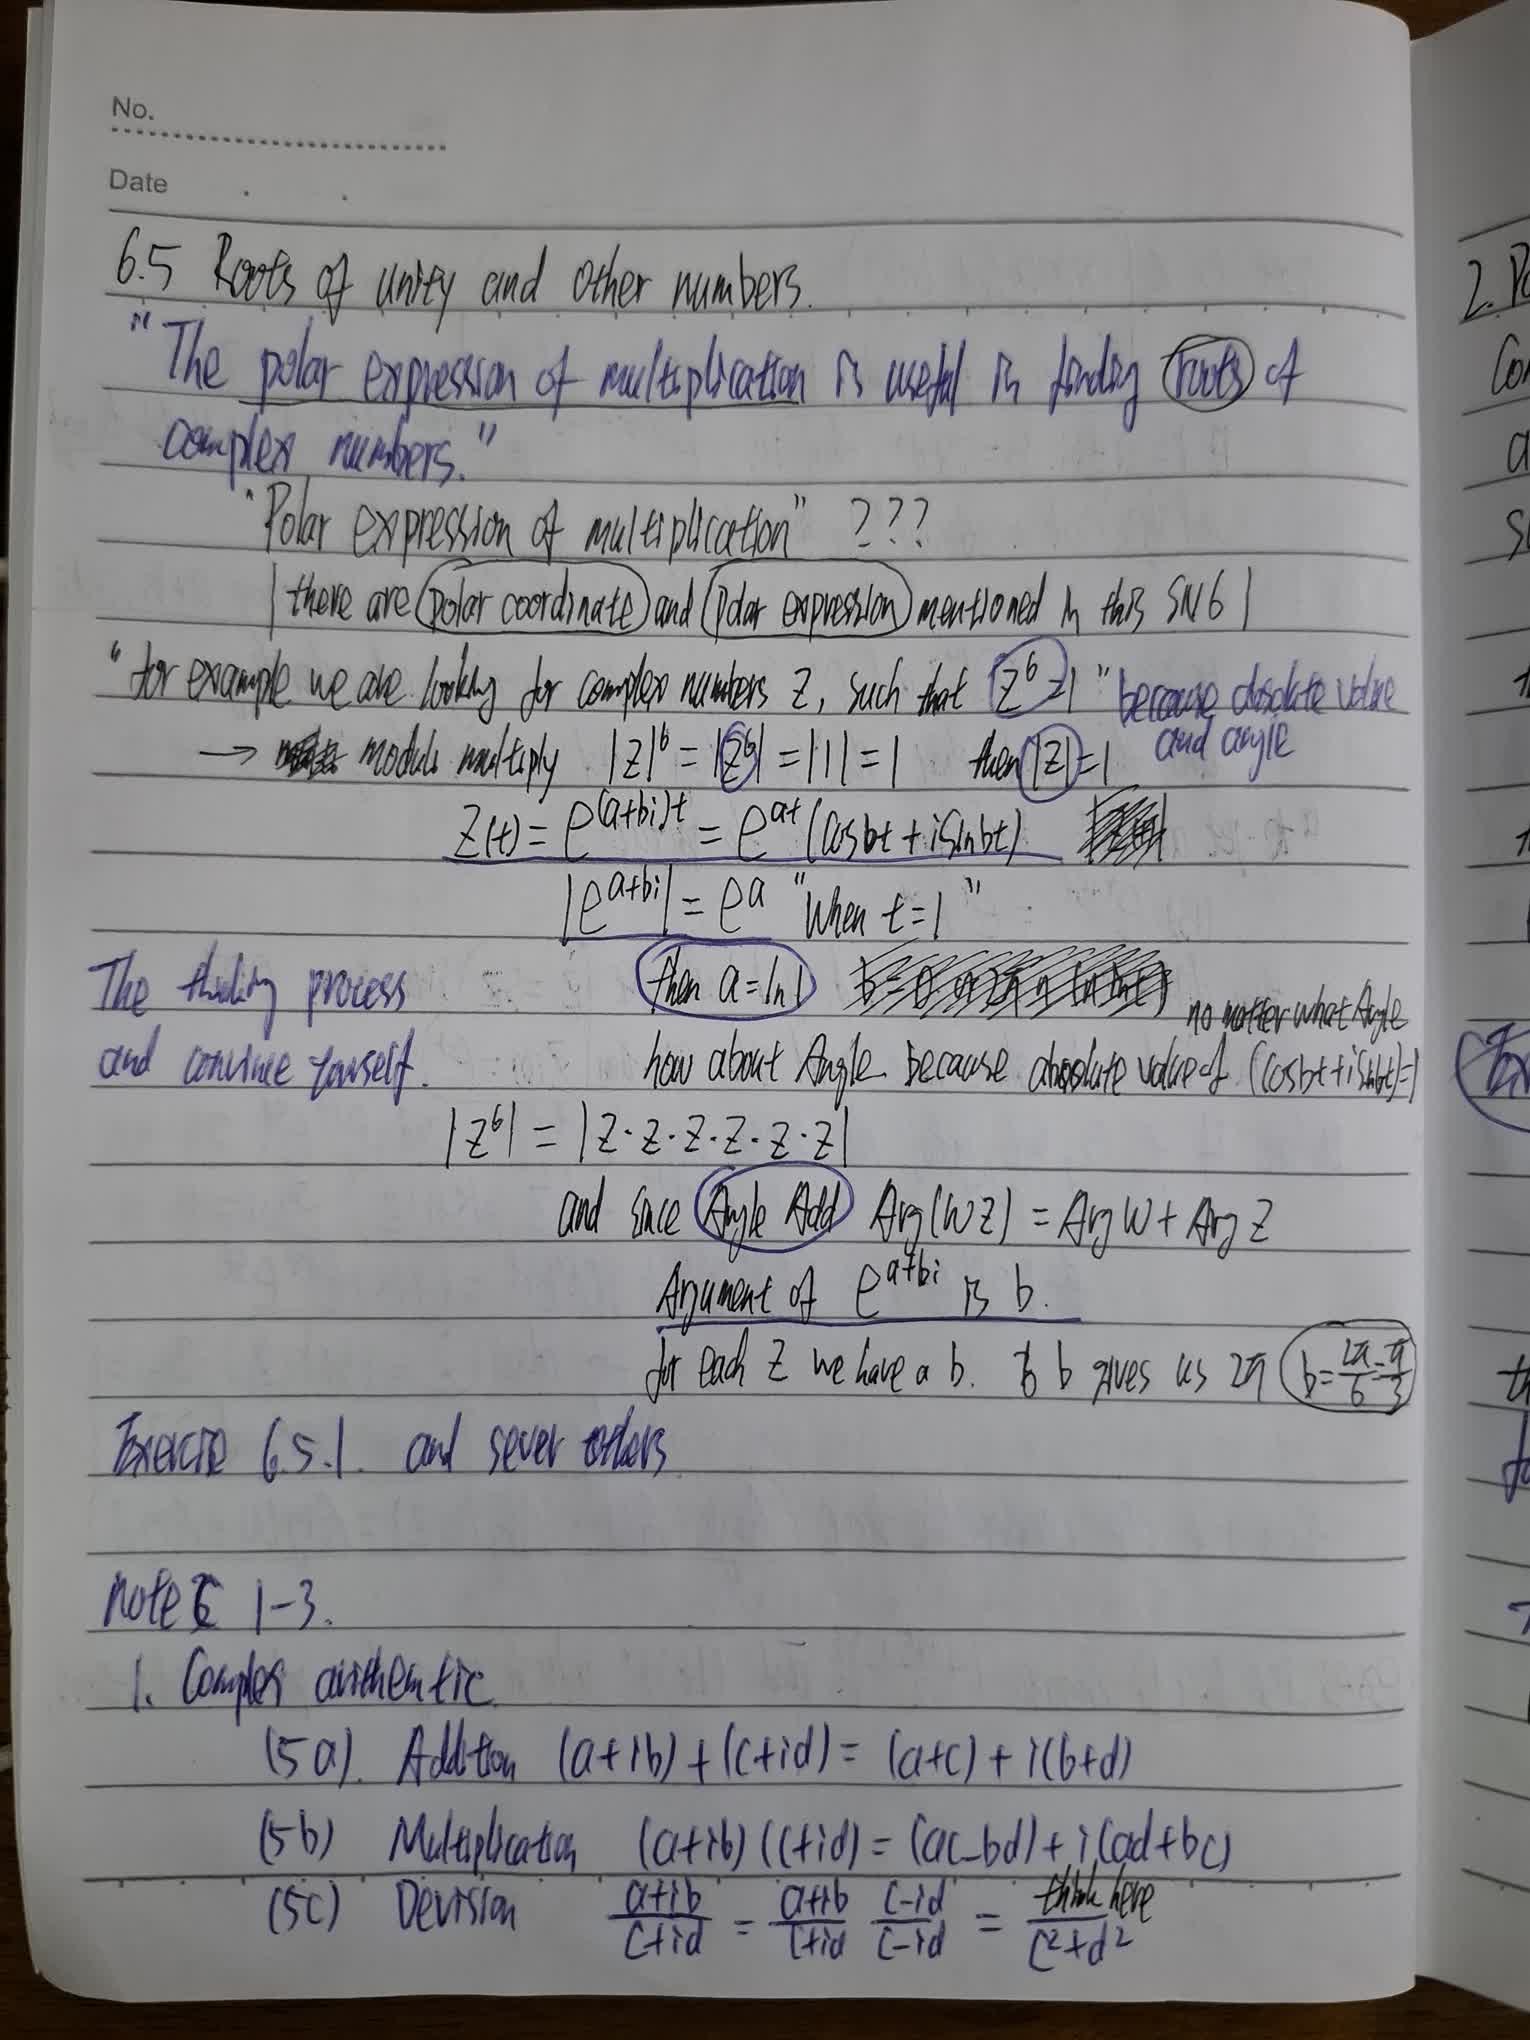 No.
Date
6.5 Roots of unity and other numbers.
"The polar expression of multiplication is useful in finding roots of
complex numbers."
"Polar expression of multiplication" ???
| there are polar coordinate and polar expression mentioned in this SN6 |
"for example we are looking for complex numbers z, such that z⁶=1" because absolute value
and angle
→ moduli multiply |z|⁶ = |z⁶| = |1| = 1 then |z| = 1
z(t) = e^(a+bi)t = e^at (cosbt + isinbt)
|e^a+bi| = e^a "when t=1"
The thinking process
and convince yourself.
then a=ln1
no matter what Angle
how about Angle because absolute value of (cosbt+isinbt)=1
|z⁶| = |z·z·z·z·z·z|
and since Angle Add Arg(wz) = Arg w + Arg z
Argument of e^a+bi is b.
for each z we have a b. 6 b gives us 2π b=2π/6=π/3
Exercise 6.5.1. and sever others
Note C 1-3.
1. Complex arithemtic
(5a). Addition (a+ib)+(c+id) = (a+c)+i(b+d)
(5b) Multiplication (a+ib)(c+id) = (ac-bd)+i(ad+bc)
(5c) Devision a+ib/c+id = a+ib/c+id c-id/c-id = think here/c²+d²
2.